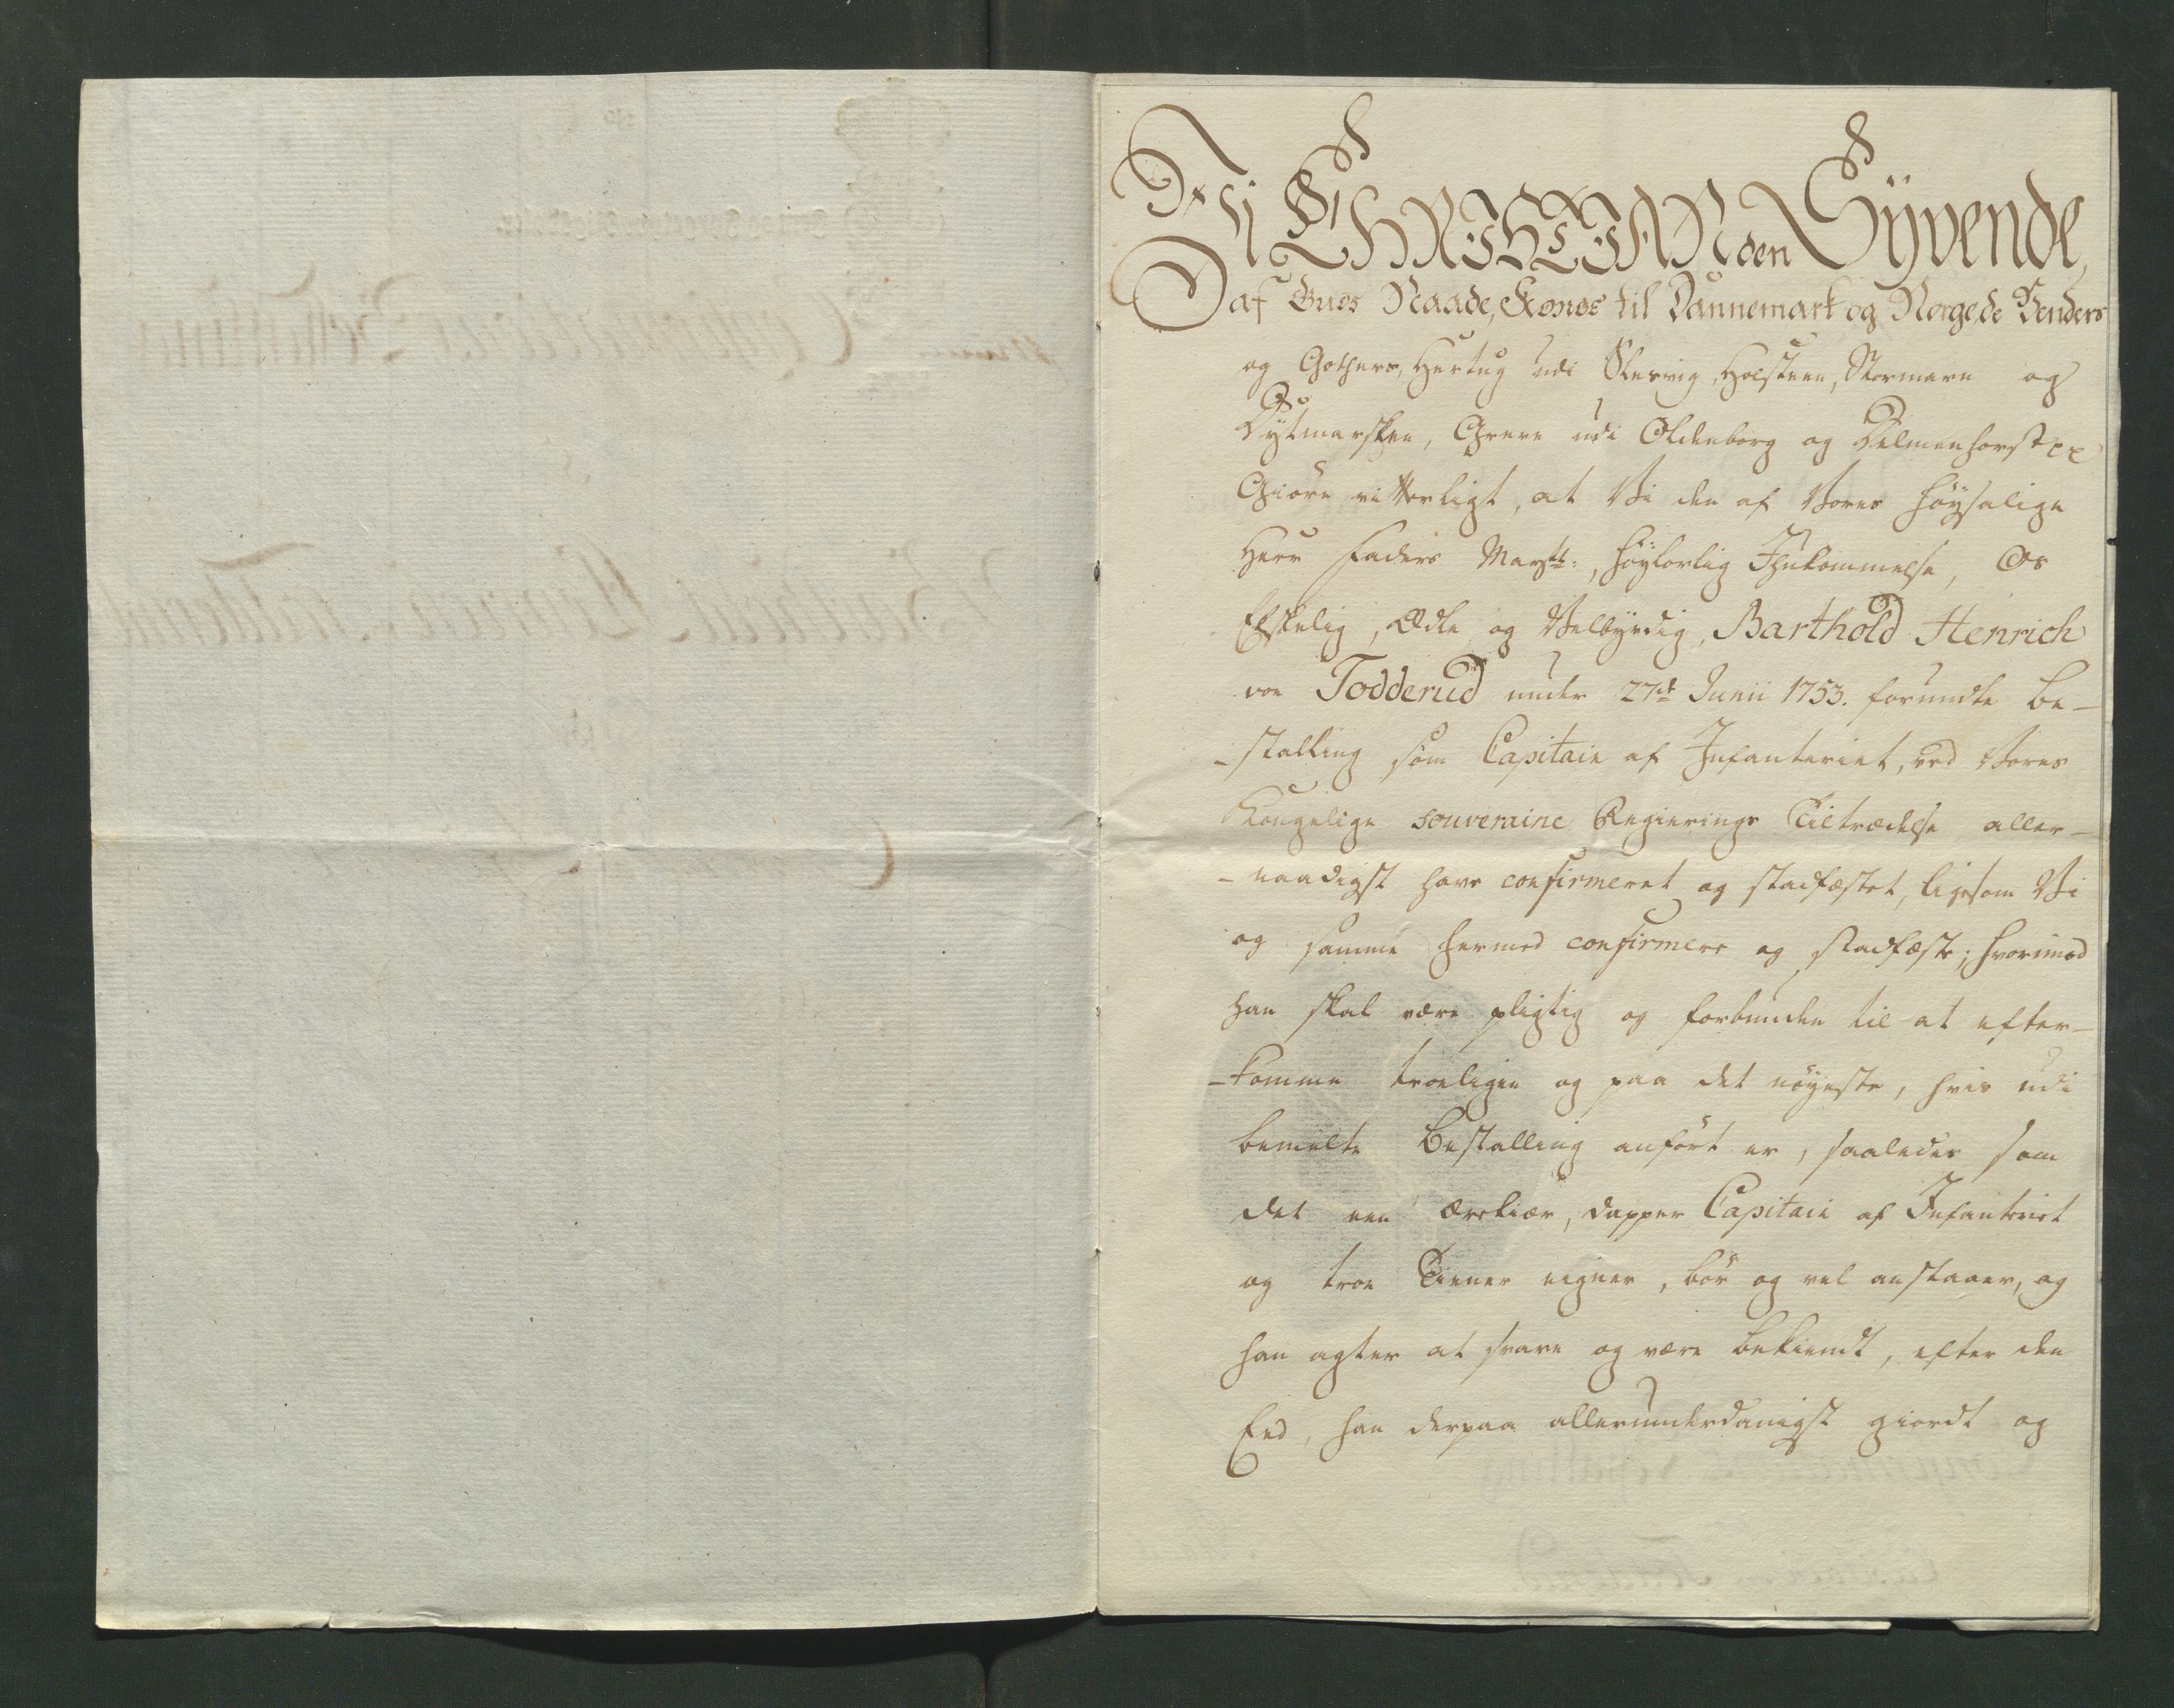 Vi CHRISTIAN den Syvende,
af Guds Naade, Konge til Dannemark og Norge, de Venders
og Gothers, Hertug udi Slesvig, Holsteen, Stormarn og
Dytmarsken, Greve udi Oldenborg og Delmenhorst
Giöre vitterligt, at Vi den af Vores höysalige
Herr Faders Mayst:, höylovlig Ihukommelse, Os
Elskelig, Ædle og Velbyrdig, Barthold Henrich
von Todderud under 27de Junii 1753. forundte Be-
-stalling som Capitain af Infanteriet, ved Vores
Kongelige souveraine Regierings Tiltrædelse aller-
-naadigst have confirmeret og stadfæstet, ligesom Vi
og samme hermed confirmere og stadfæste; hvorimod
han skal være pligtig og forbunden til at efter-
-komme troeligen og paa det nöyeste, hvis udi
bemelte Bestalling anfört er, saaledes som
det een ærekiær, dapper Capitain af Infanteriet
og troe Tiener eigner, bör og vel anstaaer, og
han agter at svare og være bekiendt, efter den
Eed, han derpaa allerunderdanigst giordt og